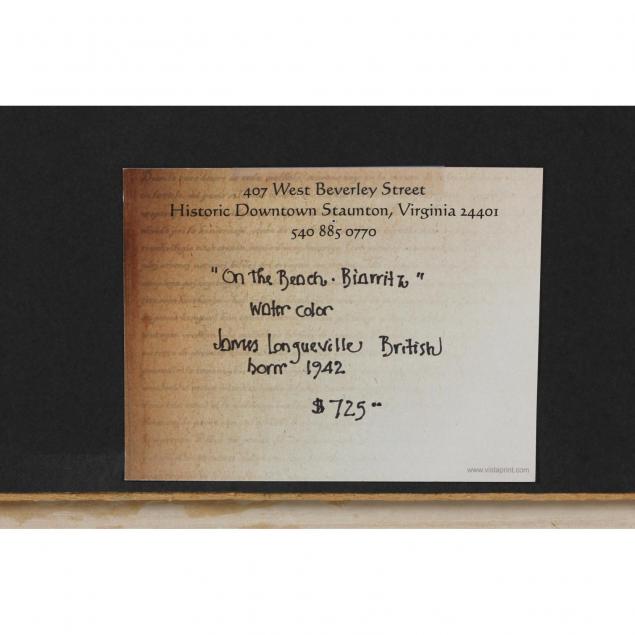 407 West Beverley Street
Historic Downtown Staunton, Virginia 24401
540 885 0770
"On the Beach. Biarritz"
water color
James Longueville British
born 1942
$725⁰⁰
www.vistaprint.com